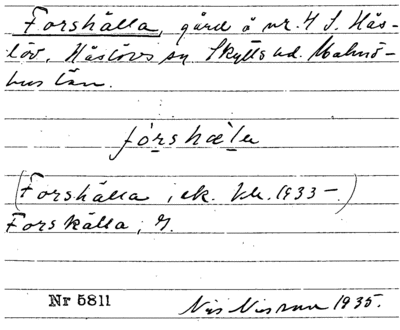 Forshälla, gård å nr. 4 S. Hås-
löv, Håslövs sn Skytts hd. Malmö-
hus län.
fórshæla
(Forshälla, ek. kbl. 1933–)
Forskälla, 
Nr 5811
Nils Nilsson 1935.